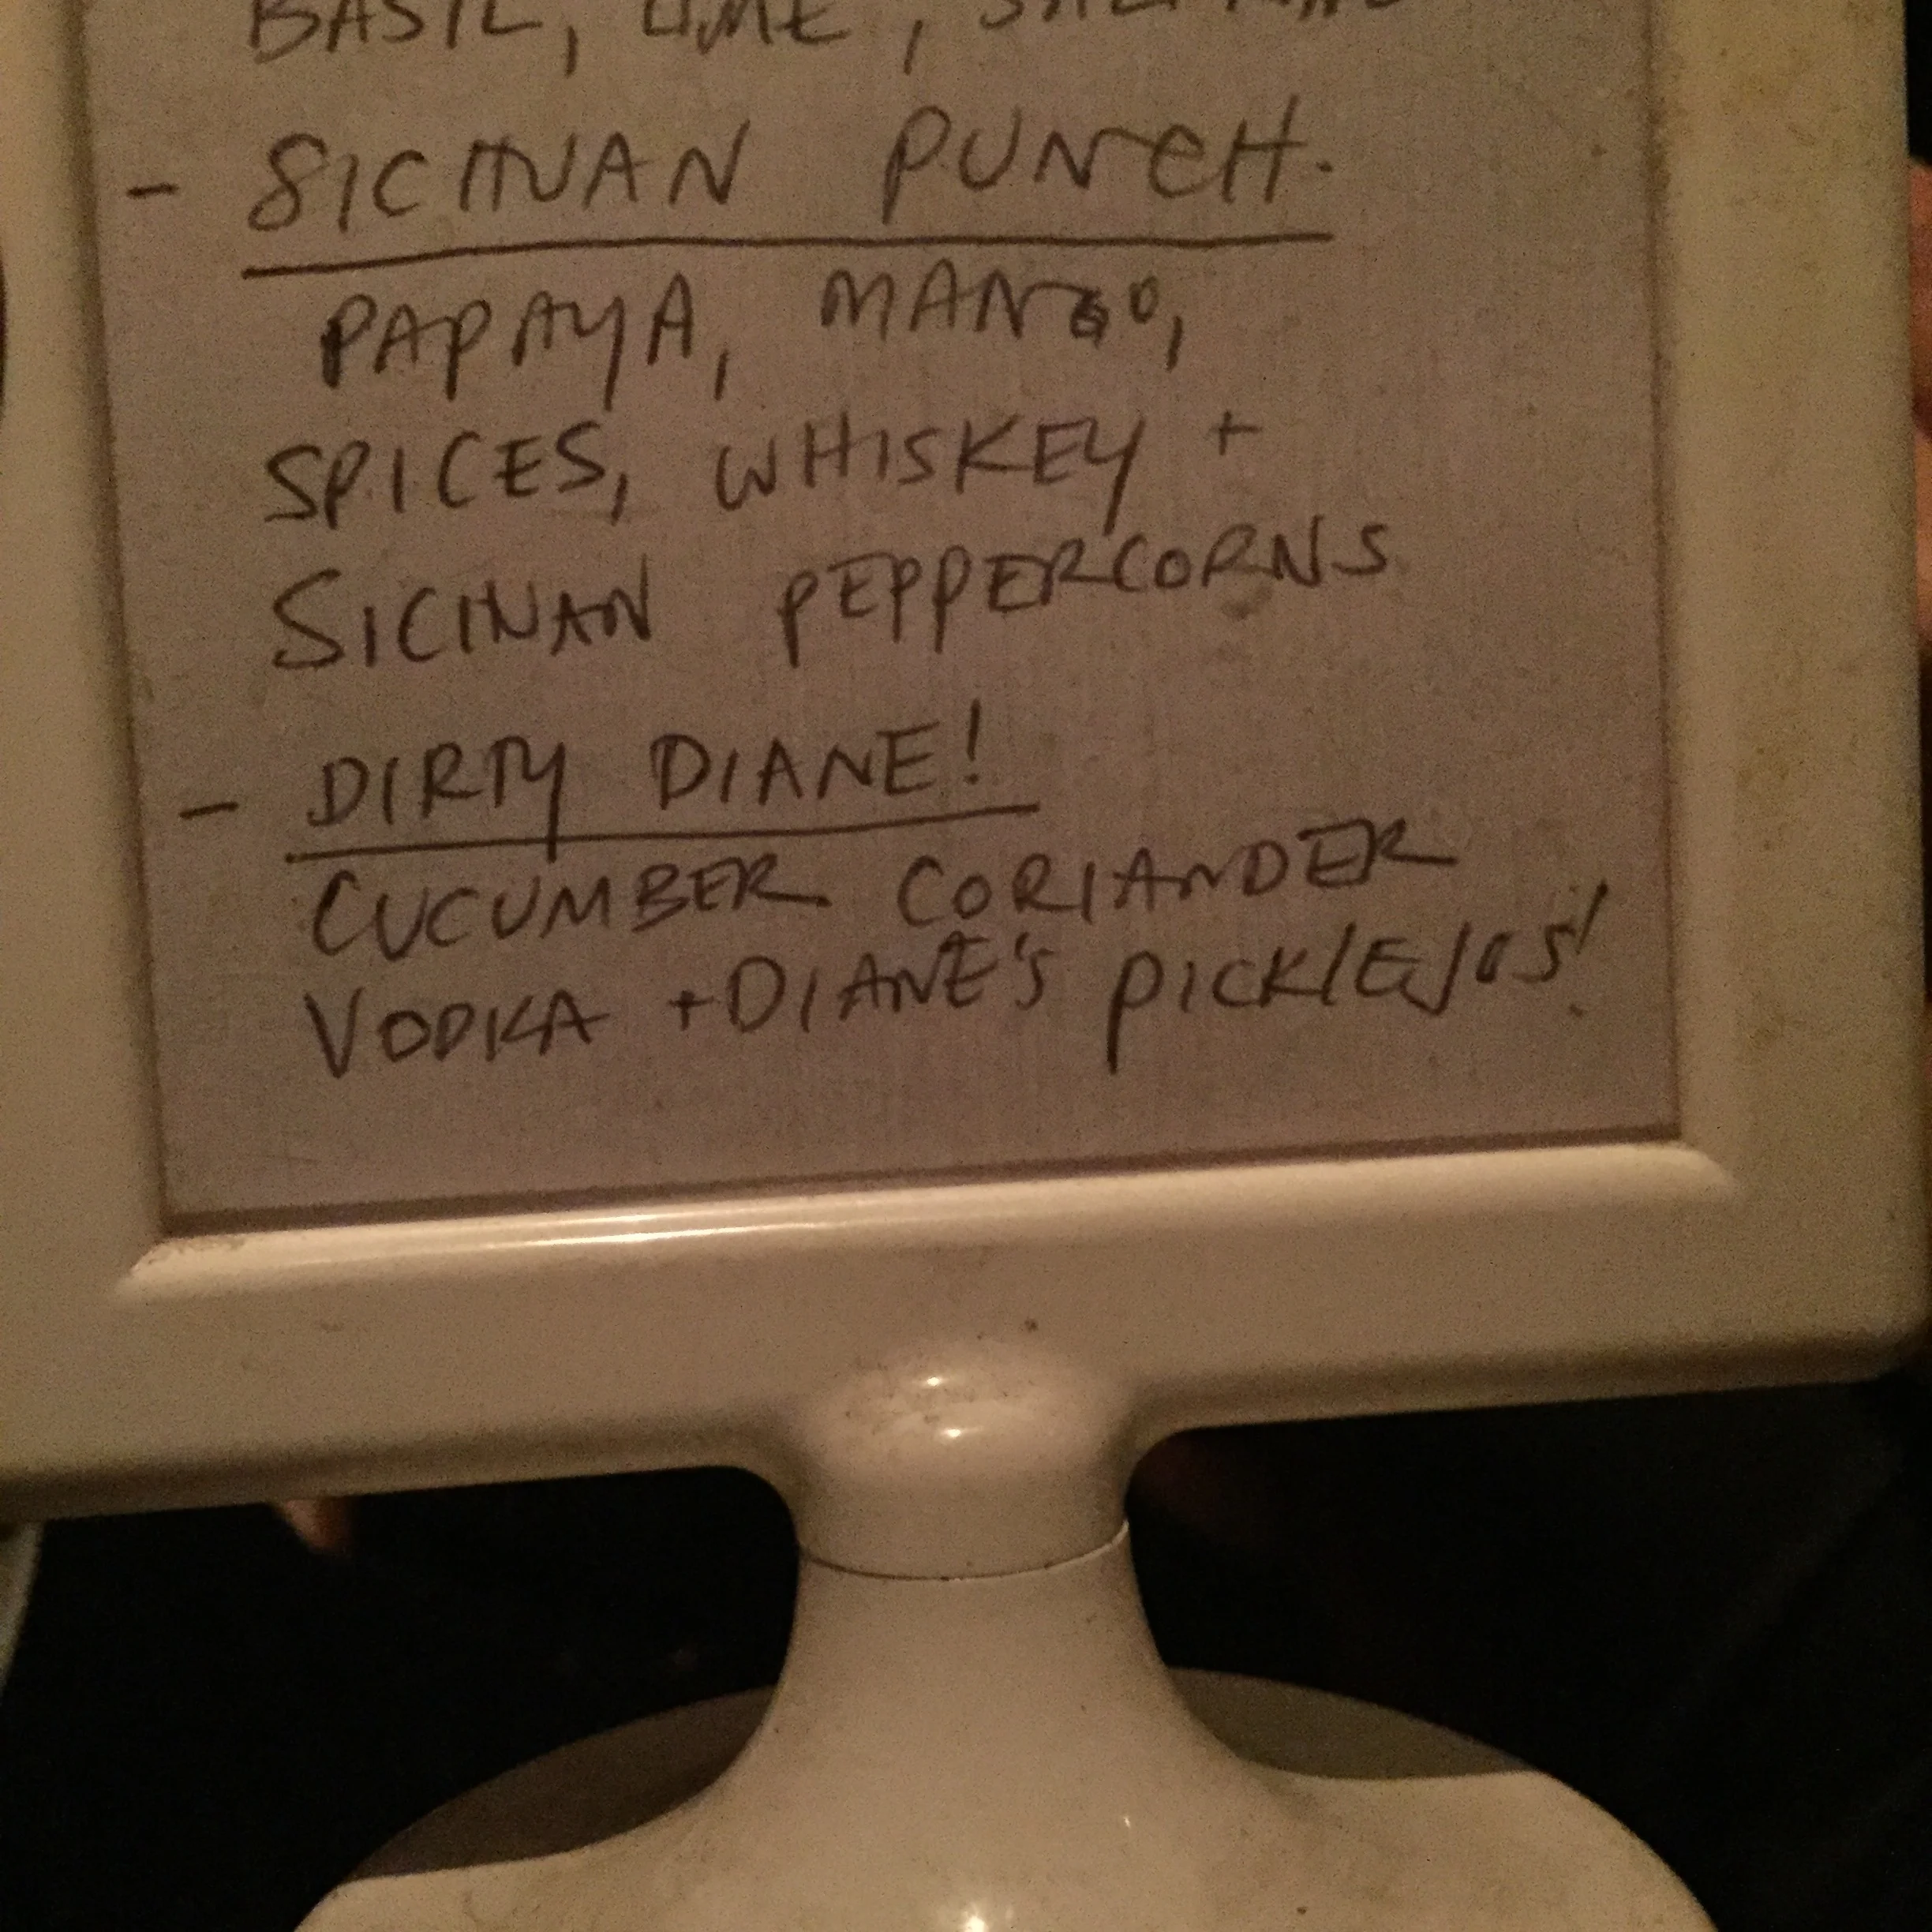 BASIL, LIME,
- SICHUAN PUNCH.
PAPAYA, MANGO,
SPICES, WHISKEY +
SICHUAN PEPPERCORNS
- DIRTY DIANE!
CUCUMBER CORIANDER
VODKA + DIANE'S PICKLE